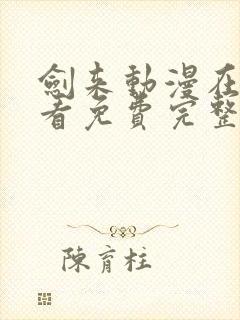 劍来動漫在
看免費完整
陳育柱